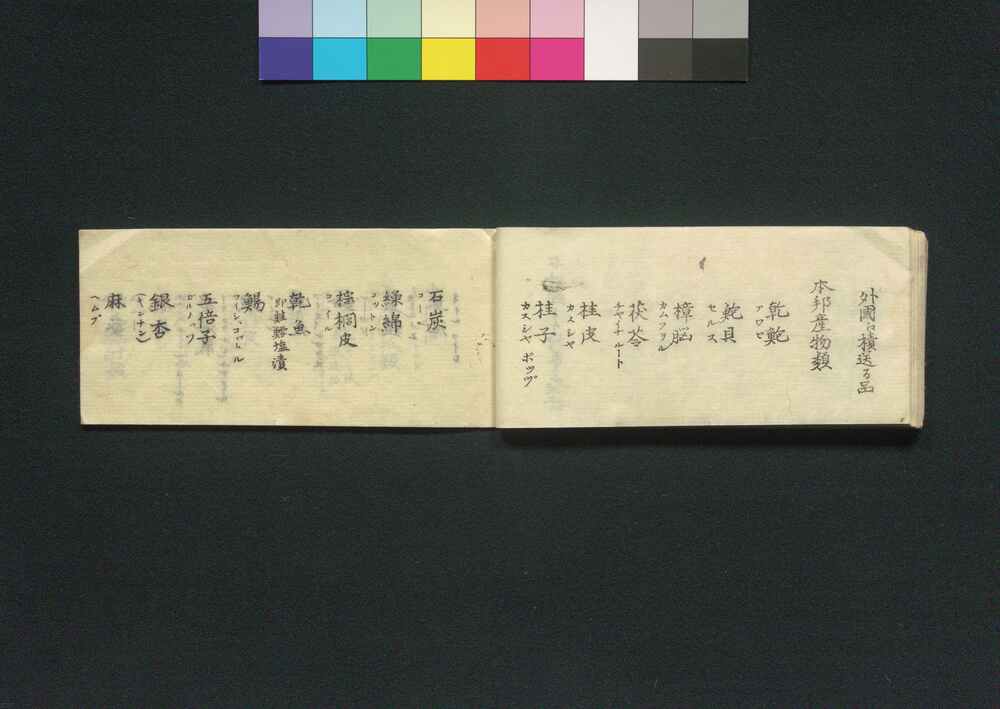 外國江積送る品
本邦産物類
乾鮑
アワビ
鮑貝
セルス
樟脳
カムフル
茯苓
チャイナルート
桂皮
カスシヤ
桂子
カスシヤ ボッヅ
石炭
コール
繰綿
コットン
棕櫚皮
コイル
乾魚
即鮭鱈塩漬
鯣
五倍子
ガルノッツ
銀杏
(キンナン)
麻
ヘムプ